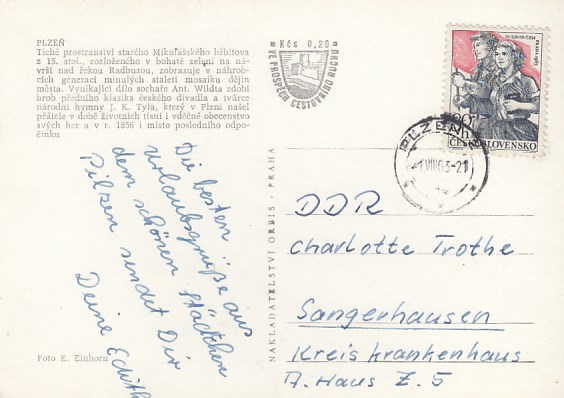 PLZEŇ
Tiché prostranství starého Mikulášského hřbitova
z 15. stol., rozloženého v bohaté zeleni na ná-
vrší nad řekou Radbuzou, zobrazuje v náhrob-
cích generací minulých staletí mosaiku dějin
města. Vynikající dílo sochaře Ant. Wildta zdobí
hrob předního klasika českého divadla a tvůrce
národní hymny J. K. Tyla, který v Plzni našel
přátele v době životních tísní i vděčné obecenstvo
svých her a v r. 1856 i místo posledního odpo-
činku
Kčs 0,20
VE PROSPĚCH CESTOVNÍHO RUCHU
PRAHA 1962
20h
ČESKOSLOVENSKO
PLZEŇ
VIII.63-21
Die besten
Urlaubsgrüße aus
dem schönen Städtchen
Pilzen sendet Dir
Deine Edith
Foto E. Einhorn
NAKLADATELSTVÍ ORBIS - PRAHA
DDR
Charlotte Trothe
Sangerhausen
Kreiskrankenhaus
A. Haus Z. 5